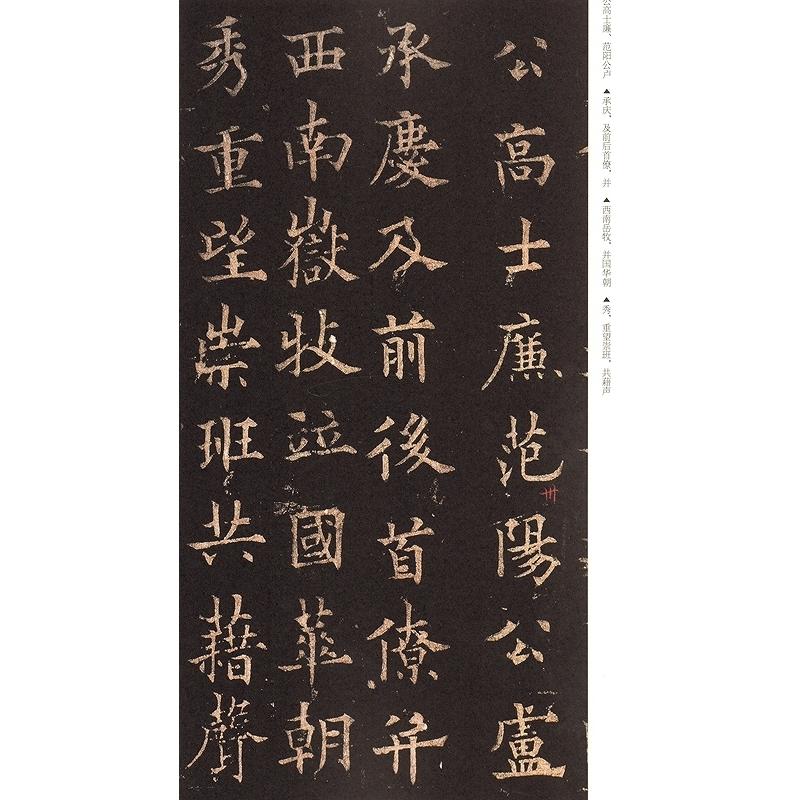 公高士廉范陽公盧
承慶及前後首僚并
西南嶽牧並國華朝
秀重望崇班共藉聲
公高士廉、范阳公卢 ▲承庆、及前后首僚，并 ▲西南岳牧，并国华朝 ▲秀，重望崇班，共藉声